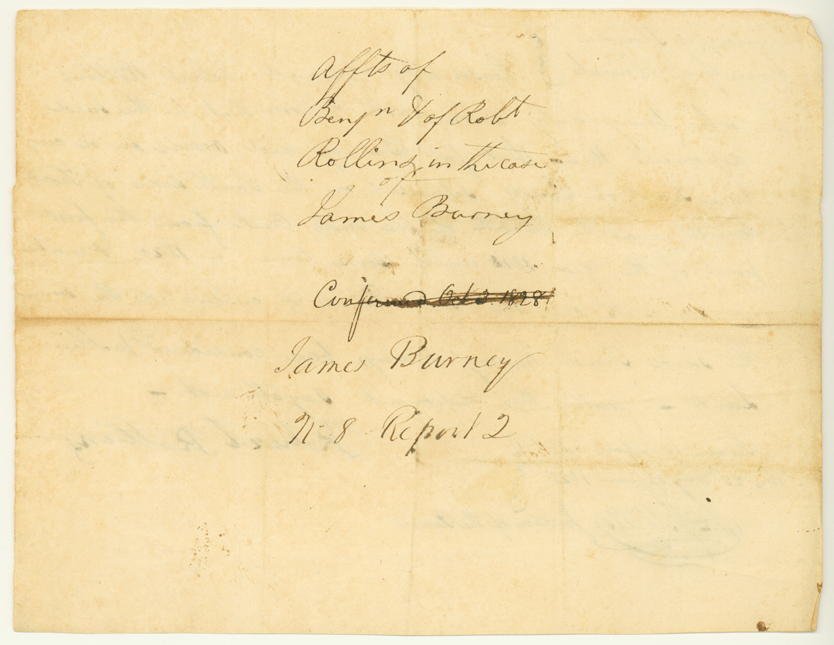 Affts of
Benjn & of Robt
Rollins in the case
of
James Burney
Confirmed Oct 2. 1828
James Burney
N- 8 Report 2